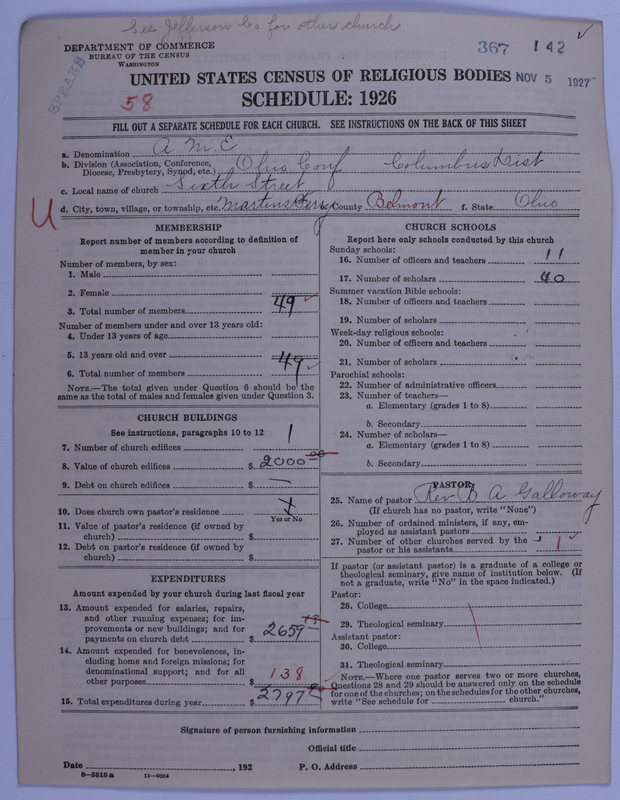 See Jefferson Co for other church
367 142
DEPARTMENT OF COMMERCE
BUREAU OF THE CENSUS
WASHINGTON
UNITED STATES CENSUS OF RELIGIOUS BODIES NOV 5 1927
58
SCHEDULE: 1926
FILL OUT A SEPARATE SCHEDULE FOR EACH CHURCH. SEE INSTRUCTIONS ON THE BACK OF THIS SHEET
a. Denomination A M E
b. Division (Association, Conference, Diocese, Presbytery, Synod, etc.) Ohio Conf Columbus Dist
c. Local name of church Sixth Street
U
d. City, town, village, or township, etc. Martins Ferry County Belmont f. State Ohio
MEMBERSHIP
Report number of members according to definition of
member in your church
Number of members, by sex:
1. Male
2. Female
3. Total number of members 49
Number of members under and over 13 years old:
4. Under 13 years of age
5. 13 years old and over 49
6. Total number of members
NOTE.—The total given under Question 6 should be the
same as the total of males and females given under Question 3.
CHURCH BUILDINGS
See instructions, paragraphs 10 to 12
7. Number of church edifices 1
8. Value of church edifices $ 2000 00
9. Debt on church edifices $ —
10. Does church own pastor's residence
Yes or No
11. Value of pastor's residence (if owned by
church) $
12. Debt on pastor's residence (if owned by
church) $
EXPENDITURES
Amount expended by your church during last fiscal year
13. Amount expended for salaries, repairs,
and other running expenses; for im-
provements or new buildings; and for
payments on church debt $ 2659
14. Amount expended for benevolences, in-
cluding home and foreign missions; for
denominational support; and for all
other purposes $ 138
15. Total expenditures during year $ 2797
CHURCH SCHOOLS
Report here only schools conducted by this church
Sunday schools:
16. Number of officers and teachers 11
17. Number of scholars 40
Summer vacation Bible schools:
18. Number of officers and teachers
19. Number of scholars
Week-day religious schools:
20. Number of officers and teachers
21. Number of scholars
Parochial schools:
22. Number of administrative officers
23. Number of teachers—
a. Elementary (grades 1 to 8)
b. Secondary
24. Number of scholars—
a. Elementary (grades 1 to 8)
b. Secondary
PASTOR
25. Name of pastor Rev B A Galloway
(If church has no pastor, write "None")
26. Number of ordained ministers, if any, em-
ployed as assistant pastors
27. Number of other churches served by the
pastor or his assistants 1
If pastor (or assistant pastor) is a graduate of a college or
theological seminary, give name of institution below. (If
not a graduate, write "No" in the space indicated.)
Pastor:
28. College
29. Theological seminary
Assistant pastor:
30. College
31. Theological seminary
NOTE.—Where one pastor serves two or more churches,
Questions 28 and 29 should be answered only on the schedule
for one of the churches; on the schedules for the other churches,
write "See schedule for church."
Signature of person furnishing information
Official title
Date , 192 P. O. Address
8-5518a 11-9034